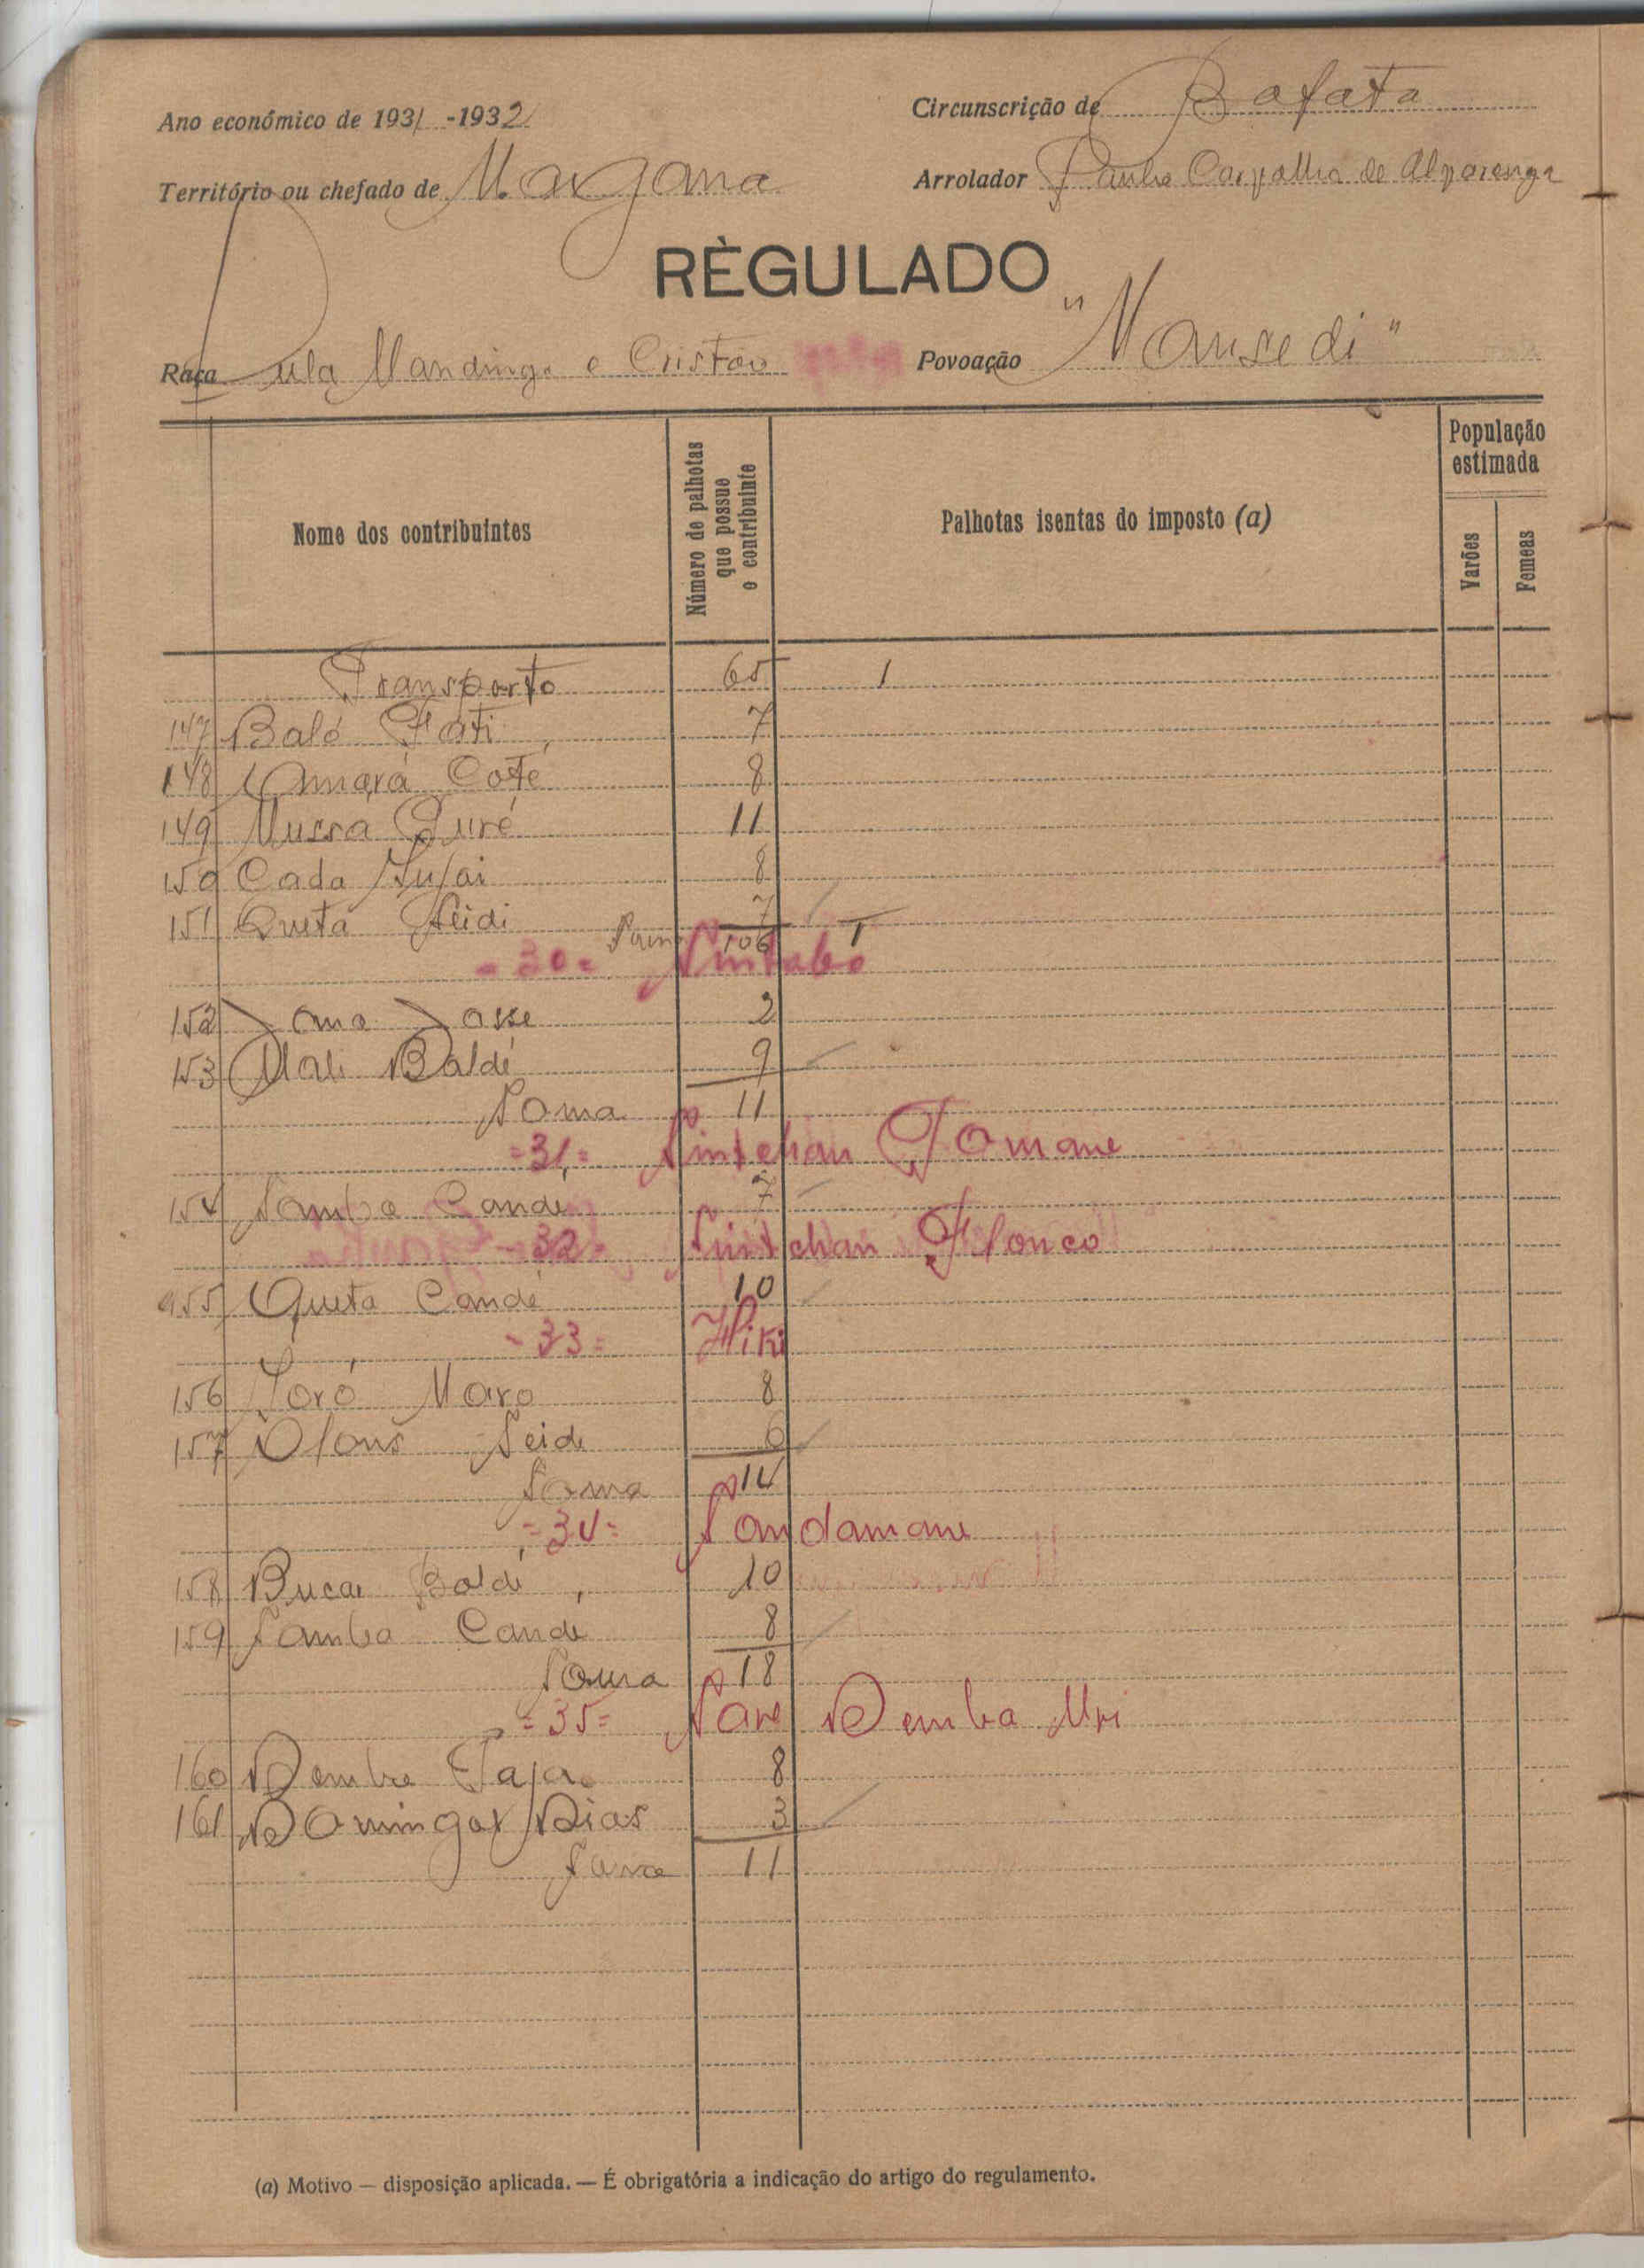 Ano económico de 1931-1932
Circunscrição de Bafata
Território ou chefado de Margana
Arrolador Carvalho de Alvarenga
RÈGULADO
Raça Fula Mandinga e Cristão
Povoação "Mansedi"
Nome dos contribuintes
Número de palhotas que possue o contribuinte
Palhotas isentas do imposto (a)
População estimada
Varões
Femeas
Transporto 65 1
147 Baló Fati 7
148 Amará Coté 8
149 Mussa Turé 11
150 Cada 8
151 Queta Seidi 7
Soma 106 1
-30=
152 2
153 Mali Baldé 9
Soma 11
=31= Sintchan Tomane
154 Samba Candé 7
-32 Sintchan
155 Queta Candé 10
-33=
156 8
157 Seidi 6
Soma 14
=34= Sandamane
158 Bucar Baldé 10
159 Samba Candé 8
Soma 18
=35= Sare Demba Uri
160 Demba 8
161 Domingos Dias 3
Soma 11
(a) Motivo — disposição aplicada. — É obrigatória a indicação do artigo do regulamento.